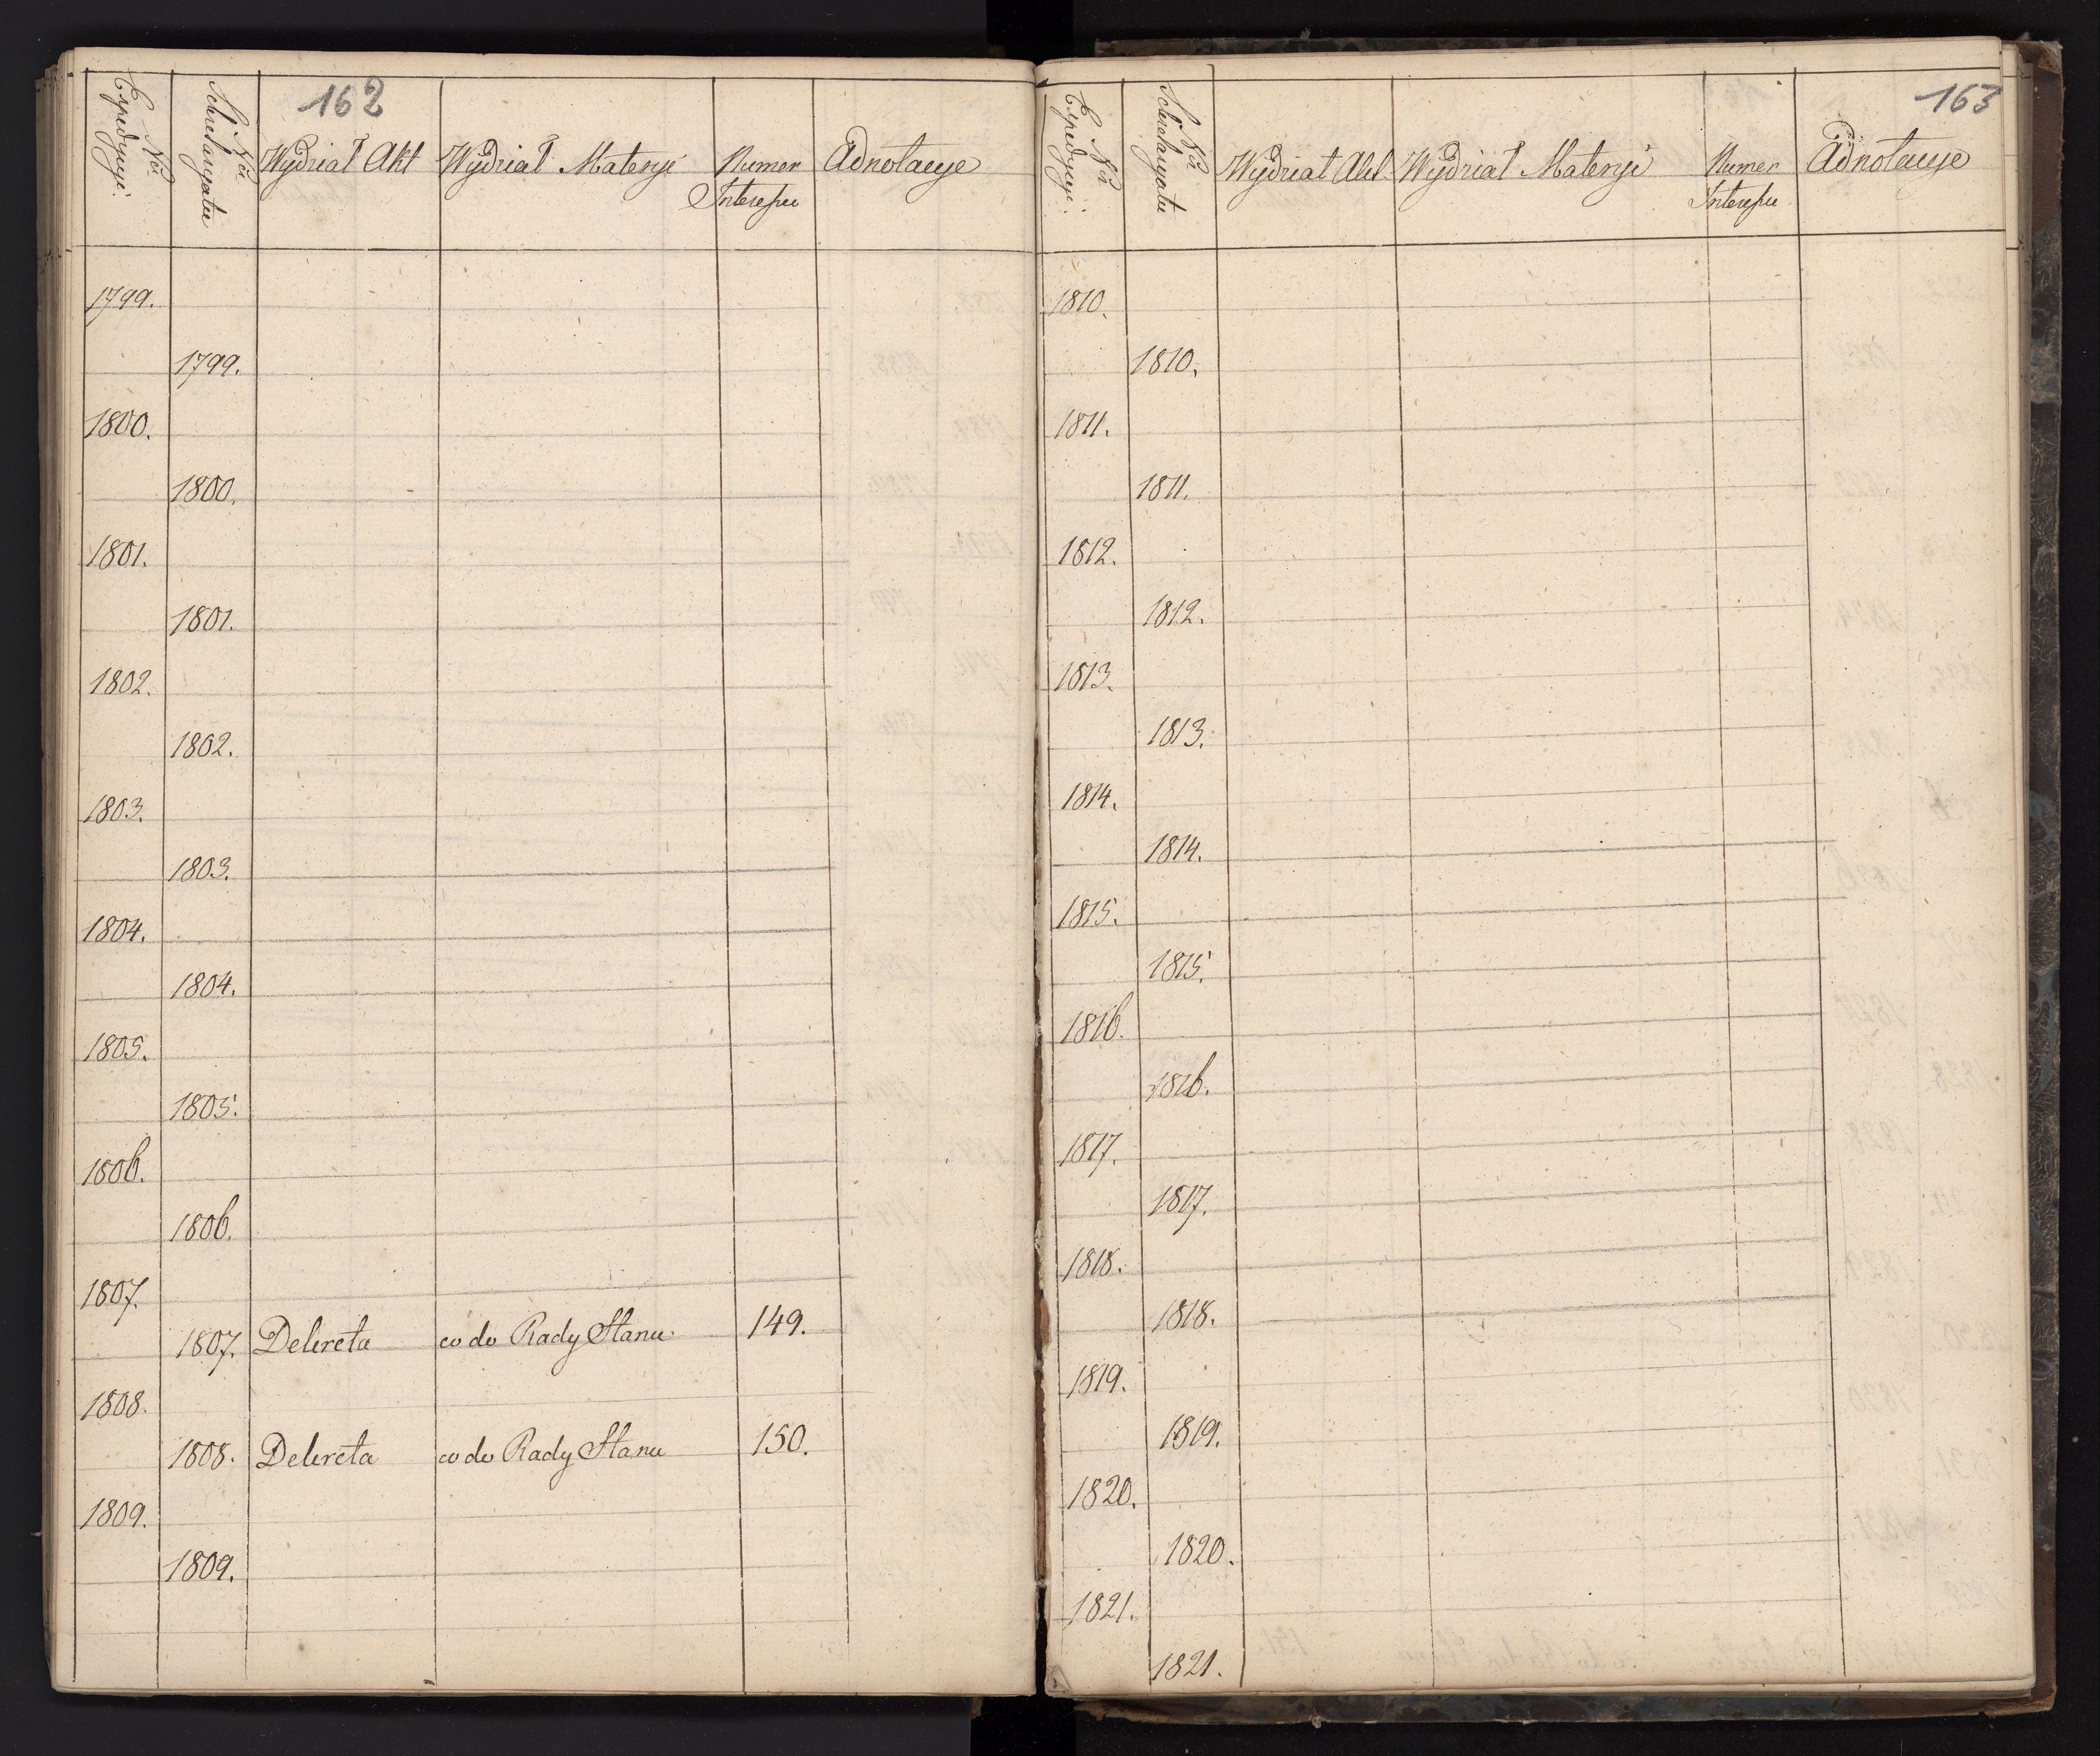 162
Nro Expedycyi.
Nro Sekretaryatu
Wydział Akt
Wydział Materyi
Numer Interessu
Adnotacye
1799.
1799.
1800.
1800.
1801.
1801.
1802.
1802.
1803.
1803.
1804.
1804.
1805.
1805.
1806.
1806.
1807.
1807. Dekreta co do Rady Stanu 149.
1808.
1808. Dekreta co do Rady Stanu 150.
1809.
1809.
163
Nro Expedycyi.
Nro Sekretaryatu
Wydział Akt
Wydział Materyi
Numer Interessu
Adnotacye
1810.
1810.
1811.
1811.
1812.
1812.
1813.
1813.
1814.
1814.
1815.
1815.
1816.
1816.
1817.
1817.
1818.
1818.
1819.
1819.
1820.
1820.
1821.
1821.